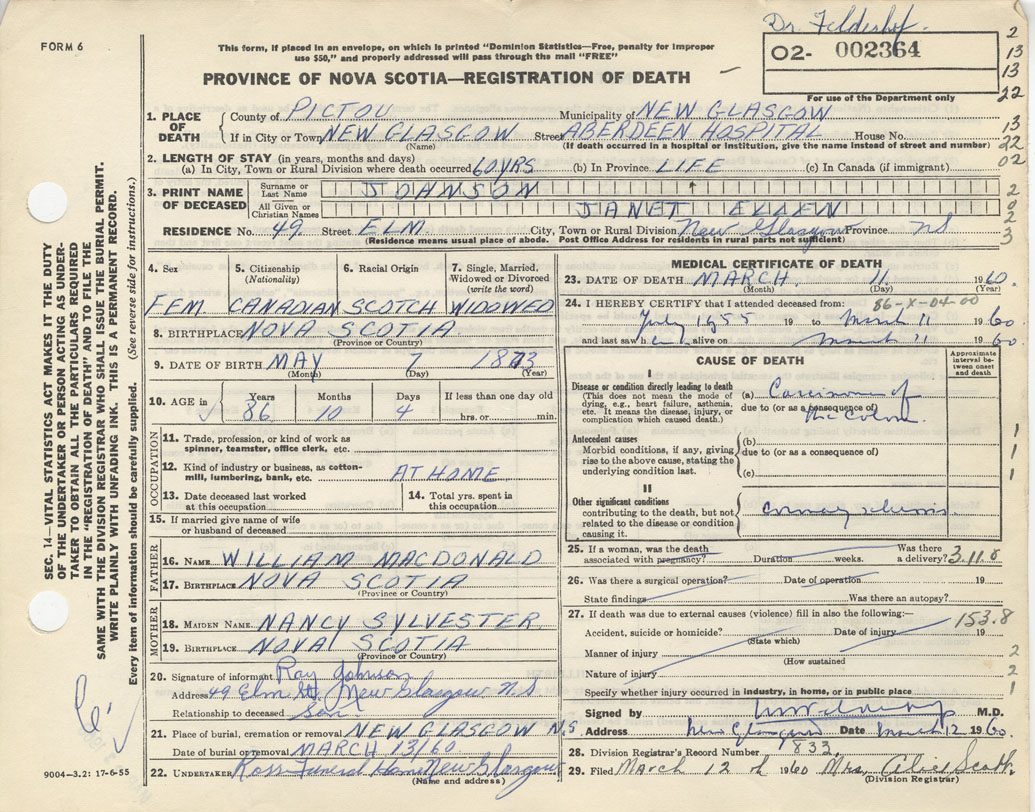 Dr. Felderhof.
FORM 6
This form, if placed in an envelope, on which is printed "Dominion Statistics—Free, penalty for improper
use $50," and properly addressed will pass through the mail "FREE"
02- 002364
For use of the Department only
PROVINCE OF NOVA SCOTIA—REGISTRATION OF DEATH
2
13
13
22
13
22
02
2
0
2
3
1. PLACE OF DEATH
County of PICTOU Municipality of NEW GLASGOW
If in City or Town NEW GLASGOW Street ABERDEEN HOSPITAL House No.
(Name) (If death occurred in a hospital or institution, give the name instead of street and number)
2. LENGTH OF STAY (in years, months and days)
(a) In City, Town or Rural Division where death occurred 60 YRS (b) In Province LIFE (c) In Canada (if immigrant)
3. PRINT NAME OF DECEASED
Surname or Last Name JOHNSON
All Given or Christian Names JANET ELLEN
RESIDENCE No. 49. Street ELM. City, Town or Rural Division New Glasgow Province NS
(Residence means usual place of abode. Post Office Address for residents in rural parts not sufficient)
4. Sex
FEM
5. Citizenship (Nationality)
CANADIAN
6. Racial Origin
SCOTCH
7. Single, Married, Widowed or Divorced (write the word)
WIDOWED
8. BIRTHPLACE NOVA SCOTIA
(Province or Country)
9. DATE OF BIRTH MAY 7 1873
(Month) (Day) (Year)
10. AGE in
Years Months Days If less than one day old
86 10 4 hrs. or min.
OCCUPATION
11. Trade, profession, or kind of work as spinner, teamster, office clerk, etc.
12. Kind of industry or business, as cotton-mill, lumbering, bank, etc. AT HOME
13. Date deceased last worked at this occupation
14. Total yrs. spent in this occupation
15. If married give name of wife or husband of deceased
FATHER
16. NAME WILLIAM MACDONALD
17. BIRTHPLACE NOVA SCOTIA
(Province or Country)
MOTHER
18. MAIDEN NAME NANCY SYLVESTER
19. BIRTHPLACE NOVA SCOTIA
(Province or Country)
20. Signature of informant Ray Johnson
Address 49 Elm St. New Glasgow N.S
Relationship to deceased Son
21. Place of burial, cremation or removal NEW GLASGOW N.S
Date of burial or removal MARCH 13/60
22. UNDERTAKER Ross Funeral Home New Glasgow
(Name and address)
MEDICAL CERTIFICATE OF DEATH
23. DATE OF DEATH MARCH. 11 1960.
(Month) (Day) (Year)
24. I HEREBY CERTIFY that I attended deceased from:
86-X-04-00
July 1955 19 to March 11 1960.
and last saw h er alive on March 11 1960.
CAUSE OF DEATH
Approximate interval between onset and death
I
Disease or condition directly leading to death
(This does not mean the mode of dying, e.g., heart failure, asthenia, etc. It means the disease, injury, or complication which caused death.)
(a) Carcinoma of
due to (or as a consequence of)
the Colon.
Antecedent causes
Morbid conditions, if any, giving rise to the above cause, stating the underlying condition last.
(b)
due to (or as a consequence of)
(c)
1
1
1
II
Other significant conditions
contributing to the death, but not related to the disease or condition causing it.
1
25. If a woman, was the death associated with pregnancy? Duration weeks. Was there a delivery? 3.11.8
26. Was there a surgical operation? Date of operation 19
State findings Was there an autopsy?
27. If death was due to external causes (violence) fill in also the following:—
153.8
Accident, suicide or homicide? Date of injury 19
(State which)
Manner of injury 2
(How sustained
Nature of injury 2
Specify whether injury occurred in industry, in home, or in public place 1
Signed by M.D.
Address New Glasgow Date March 12 1960.
28. Division Registrar's Record Number 833
29. Filed March 12 th 1960 Mrs. Alice Scott.
(Division Registrar)
SEC. 14—VITAL STATISTICS ACT MAKES IT THE DUTY
OF THE UNDERTAKER OR PERSON ACTING AS UNDER-
TAKER TO OBTAIN ALL THE PARTICULARS REQUIRED
IN THE "REGISTRATION OF DEATH" AND TO FILE THE
SAME WITH THE DIVISION REGISTRAR WHO SHALL ISSUE THE BURIAL PERMIT.
WRITE PLAINLY WITH UNFADING INK. THIS IS A PERMANENT RECORD.
Every item of information should be carefully supplied. (See reverse side for instructions.)
9004—3.2: 17-6-55